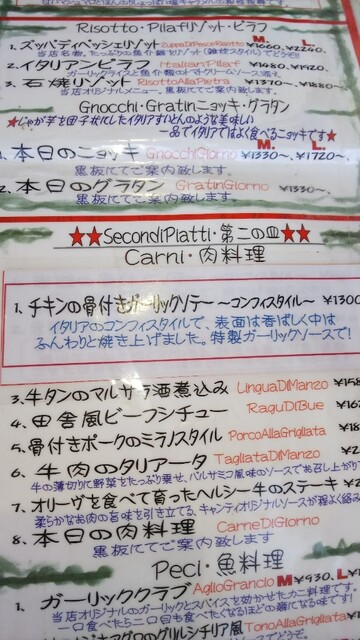 Risotto・Pilafリゾット・ピラフ
M. L.
1. ズッパディペッシェリゾット ZuppaDiPesceRisotto ¥1660、¥2260.
2. イタリアンピラフ ItalianPilaf ¥1680、¥1920
ガーリックライスと魚介類の
3. 石焼リゾット RisottoAllaPietra ¥1370~、¥1880~
当店オリジナルメニュー、黒板にてご案内致します。
Gnocchi・Gratinニョッキ・グラタン
★じゃが芋を団子状にしたイタリアすいとんのような美味しい
一品でイタリアではよく食べるニョッキです★
M. L.
1. 本日のニョッキ GnocchiGiorno ¥1330~、¥1720~.
黒板にてご案内致します。
2. 本日のグラタン GratinGiorno ¥1330~.
黒板にてご案内致します。
★★SecondiPiatti・第二の皿★★
Carni・肉料理
1、チキンの骨付きガーリックソテー ~コンフィスタイル~ ¥1300
イタリアのコンフィスタイルで、表面は香ばしく中は
ふんわりと焼き上げました。特製ガーリックソースで!
3.牛タンのマルサラ酒煮込み LinguaDiManzo
4.田舎風ビーフシチュー RaguDiBue
5.骨付きポークのミラノスタイル PorcoAllaGrigliata
6. 牛肉のタリアータ TagliataDiManzo
牛の薄切りに野菜をたっぷり乗せ、バルサミコ風味のソースでお召し上がり
7、オリーヴを食べて育ったヘルシー牛のステーキ
柔らかなお肉の旨味を引き立てる、キャンティオリジナルソースが程よく絡み
8. 本日の肉料理 CarneDiGiorno
黒板にてご案内致します
Peci・魚料理
1. ガーリッククラブ AglioGranclo M ¥930、L
当店オリジナルのガーリックとスパイスを効かせたカニ料理です。
一口食べたら
のグリルシチリア風 TonoAllaGrigliata